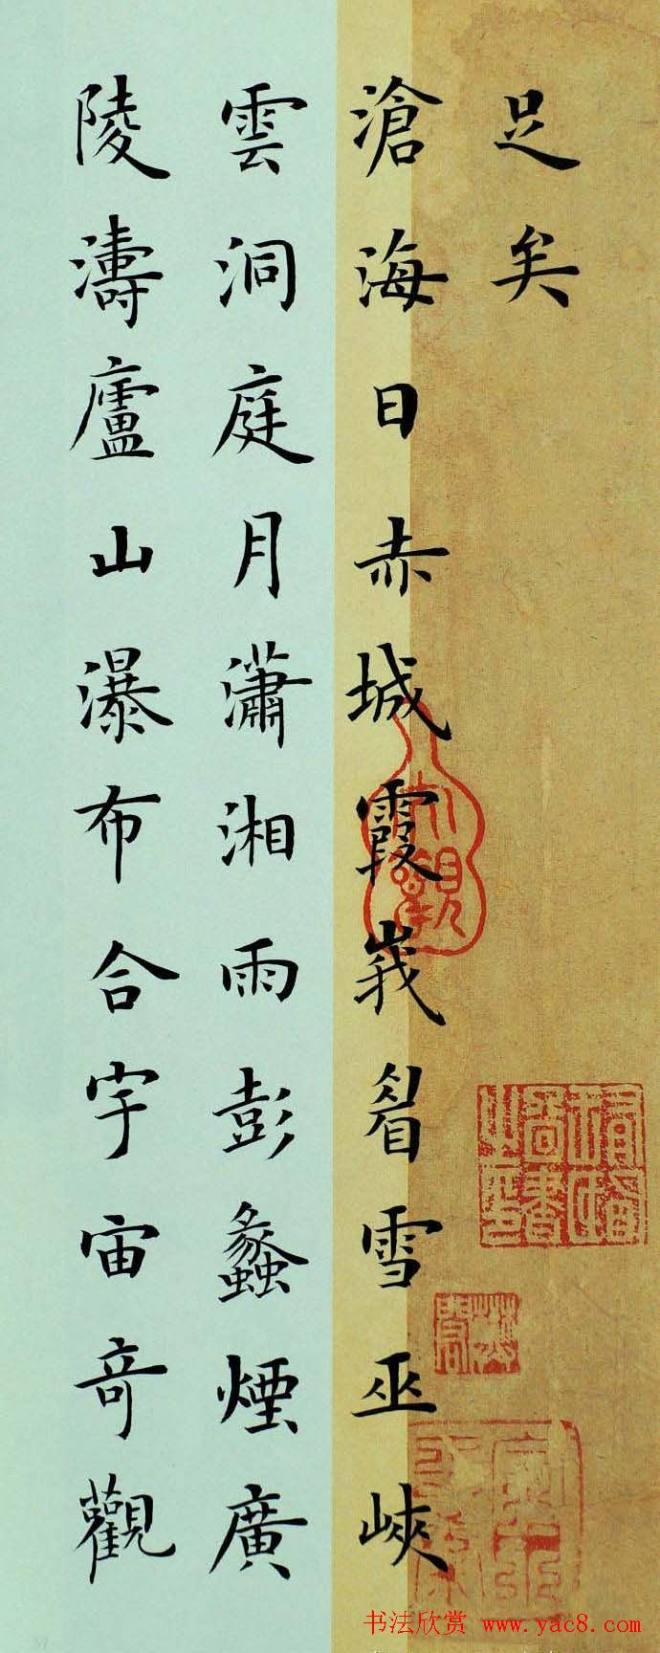 足矣
滄海日赤城霞峩眉雪巫峽
雲洞庭月瀟湘雨彭蠡煙廣
陵濤廬山瀑布合宇宙奇觀
书法欣赏 www.yac8.com